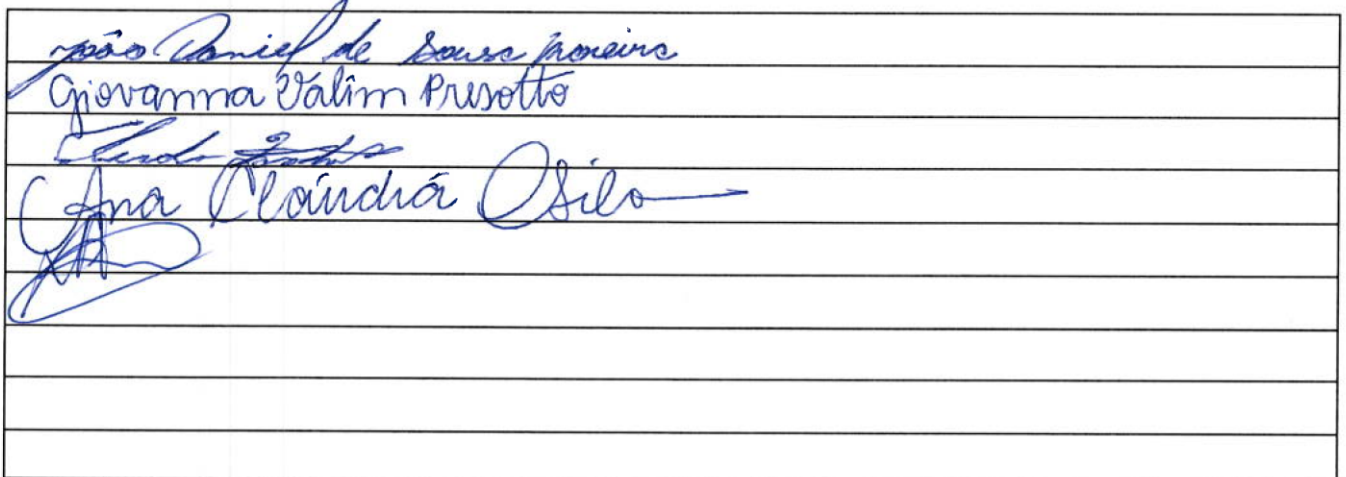 João Daniel de Sousa Moreira
Giovanna Valim Presotto
Ana Cláudia Silva